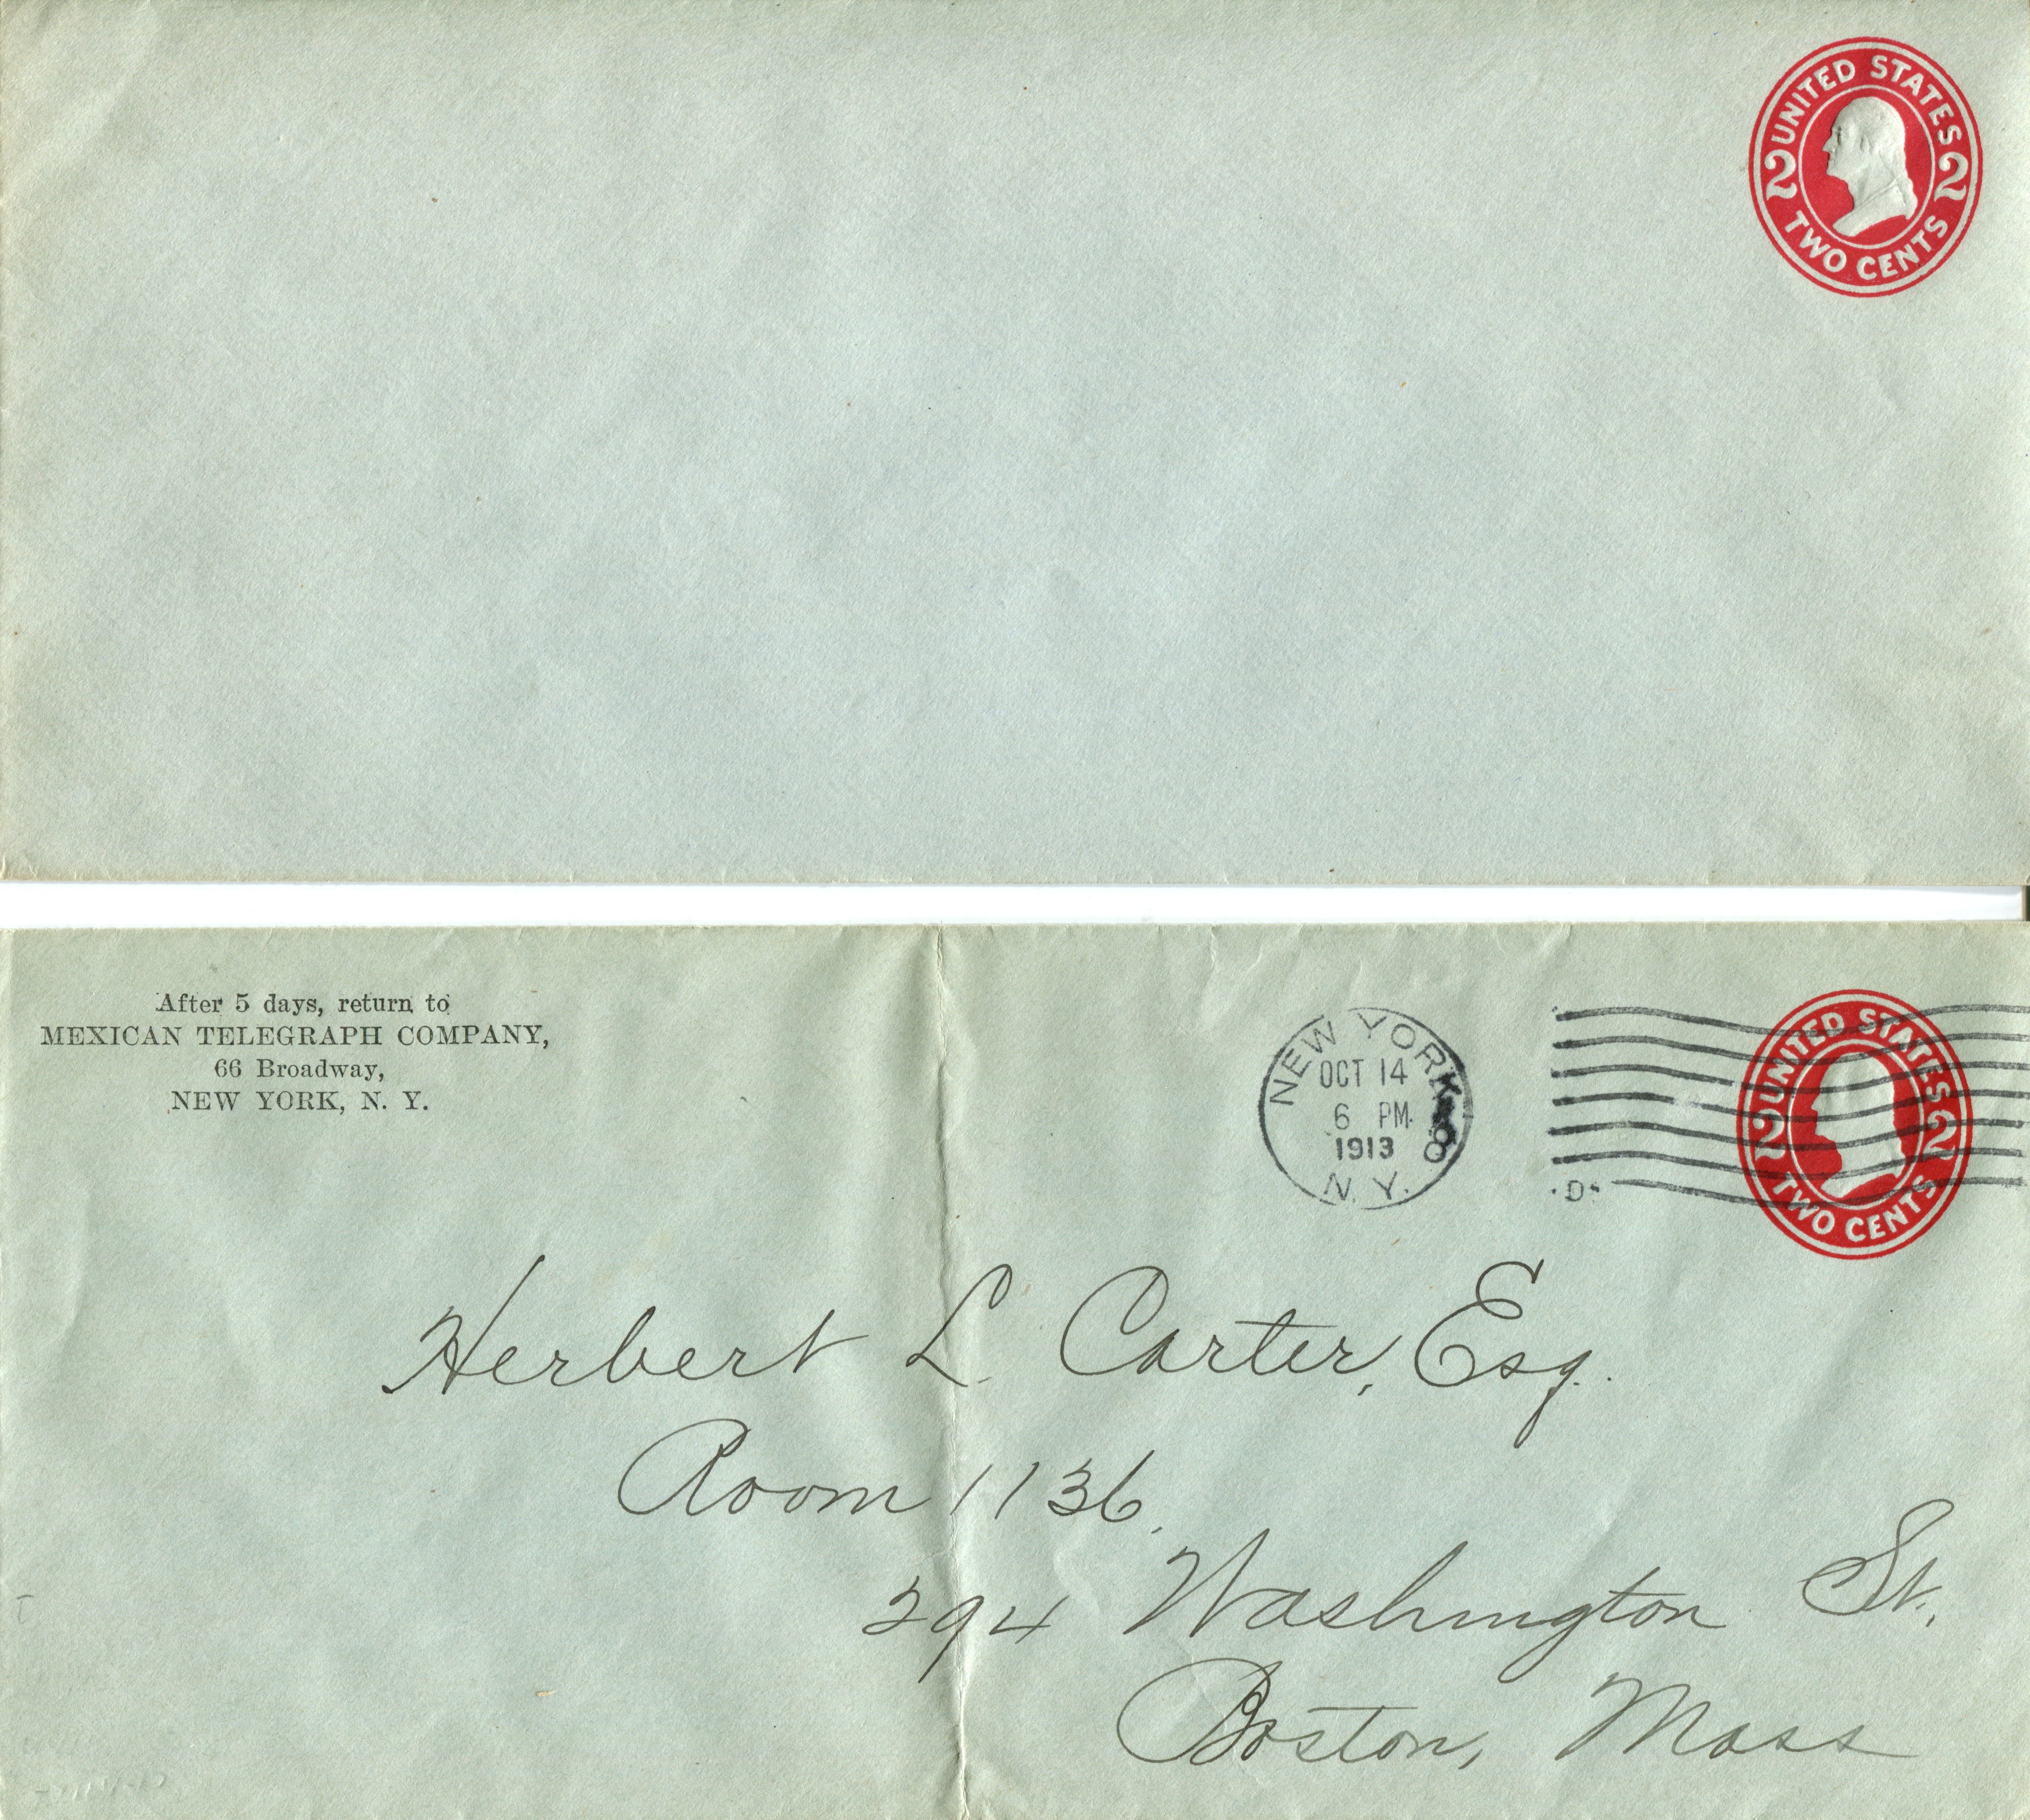 UNITED STATES
2 2
TWO CENTS
After 5 days, return to
MEXICAN TELEGRAPH COMPANY,
66 Broadway,
NEW YORK, N. Y.
NEW YORK
OCT 14
6 PM
1913
N. Y.
D
UNITED STATES
2 2
TWO CENTS
Herbert L. Carter, Esq.
Room 1136,
294 Washington St.,
Boston, Mass